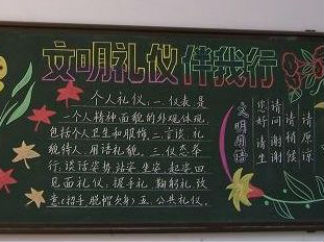 文明礼仪伴我行
个人礼仪:一.仪表 是
一个人精神面貌的外观体现
包括个人卫生和服饰,二言谈.礼
貌待人.用语礼貌.三.仪态举
行:谈话姿势.站姿.坐姿.起姿.四
见面礼仪:握手礼.鞠躬礼.致
意(招手.脱帽.欠身)五.公共礼仪.
文明用语
您好 请坐
请问 谢谢
请 稍候
请原谅